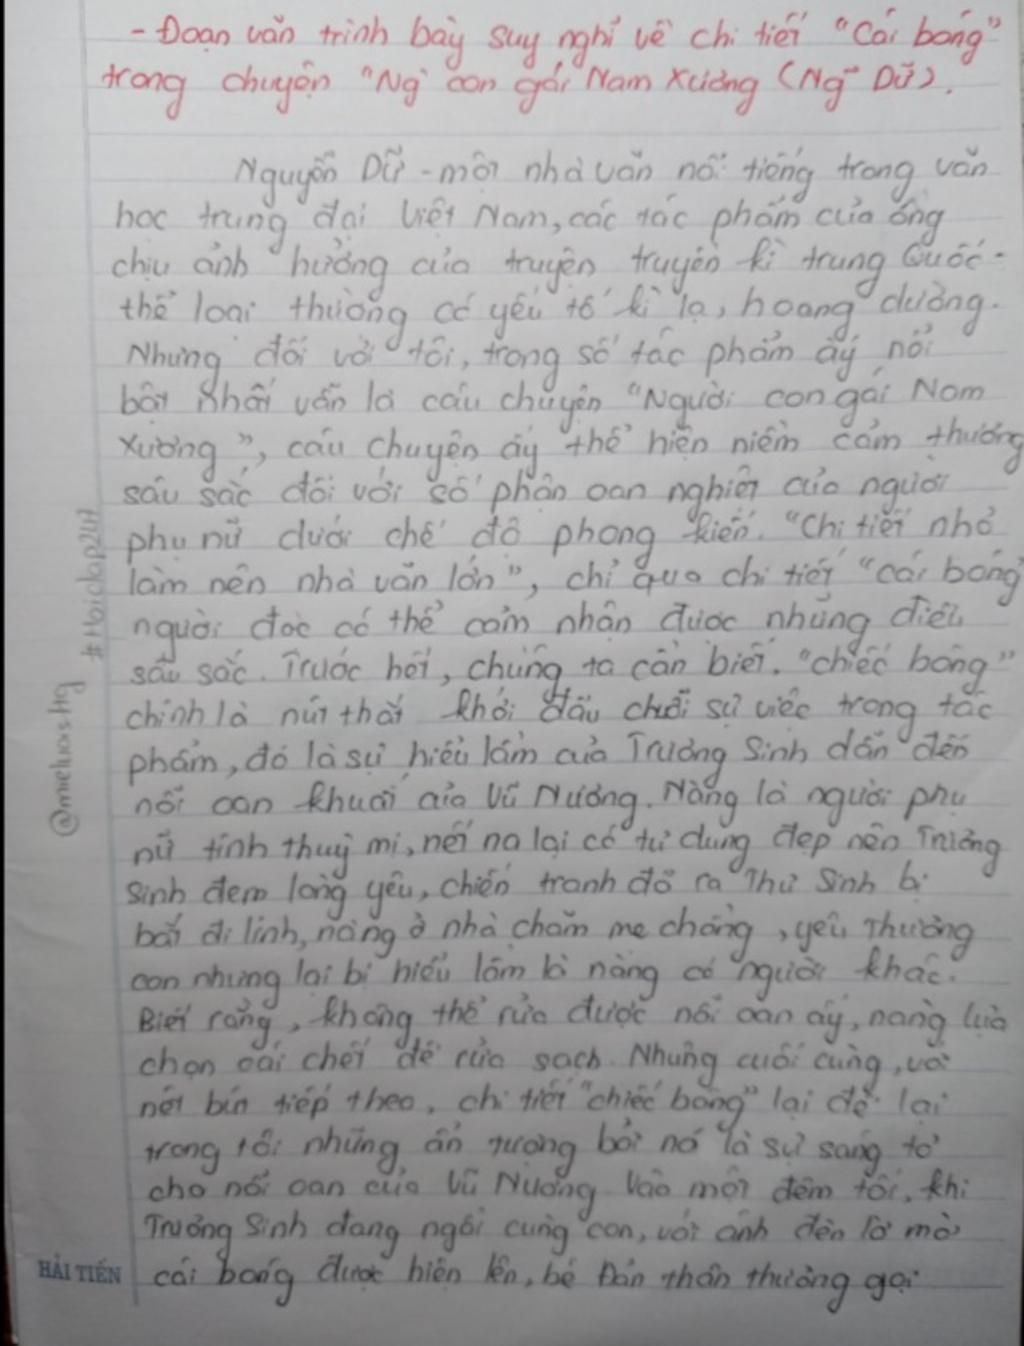 - Đoạn văn trình bày suy nghĩ về chi tiết "Cái bóng"
trong chuyện "Ng` con gái Nam Xương (Ng~ Dữ).
Nguyễn Dữ - một nhà văn nổi tiếng trong văn
học trung đại Việt Nam, các tác phẩm của ông
chịu ảnh hưởng của truyện truyền kì trung Quốc -
thể loại thường có yếu tố kì lạ, hoang đường.
Nhưng đối với tôi, trong số tác phẩm ấy nổi
bật nhất vẫn là câu chuyện "Người con gái Nam
Xương", câu chuyện ấy thể hiện niềm cảm thương
sâu sắc đối với số phận oan nghiệt của người
phụ nữ dưới chế độ phong kiến. "Chi tiết nhỏ
làm nên nhà văn lớn", chỉ qua chi tiết "cái bóng"
người đọc có thể cảm nhận được những điều
sâu sắc. Trước hết, chúng ta cần biết. "chiếc bóng"
chính là nút thắt khởi đầu chuỗi sự việc trong tác
phẩm, đó là sự hiểu lầm của Trương Sinh dẫn đến
nỗi oan khuất của Vũ Nương. Nàng là người phụ
nữ tính thuỳ mị, nết na lại có tư dung đẹp nên Trương
Sinh đem lòng yêu, chiến tranh đổ ra Thư Sinh bị
bắt đi lính, nàng ở nhà chăm mẹ chồng, yêu thương
con nhưng lại bị hiểu lầm là nàng có người khác.
Biết rằng, không thể rửa được nỗi oan ấy, nàng lựa
chọn cái chết để rửa sạch. Nhưng cuối cùng, với
nét bút tiếp theo, chi tiết "chiếc bóng" lại để lại
trong tôi những ấn tượng bởi nó là sự sáng tỏ
cho nỗi oan của Vũ Nương. Vào một đêm tối, khi
Trương Sinh đang ngồi cùng con, với ánh đèn lờ mờ
cái bóng được hiện lên, bé Đản thân thương gọi
@mieluas.ltg #Hoidap247
HẢI TIẾN